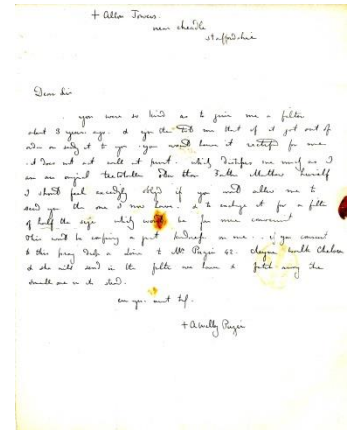 + Alton Towers
near Cheadle
Staffordshire
Dear Sir
you were so kind as to give me a filter
about 3 years ago. & you then told me that if it got out of
order on sending it to you you would have it rectified for me
it does not act well at present. which me much as I
am an original teetotaller than Father Mathew himself
I should feel exceedingly obliged if you would allow me to
send you the one I now have. & to exchange it for a filter
of half the size which would be far more convenient
this will be confering a great kindness on me. if you consent
to this pray drop a line to Mr Pugin 42. Cheyne Walk Chelsea
& she will send in the filter we have & fetch away the
smaller one in its stead.
+AWelby Pugin